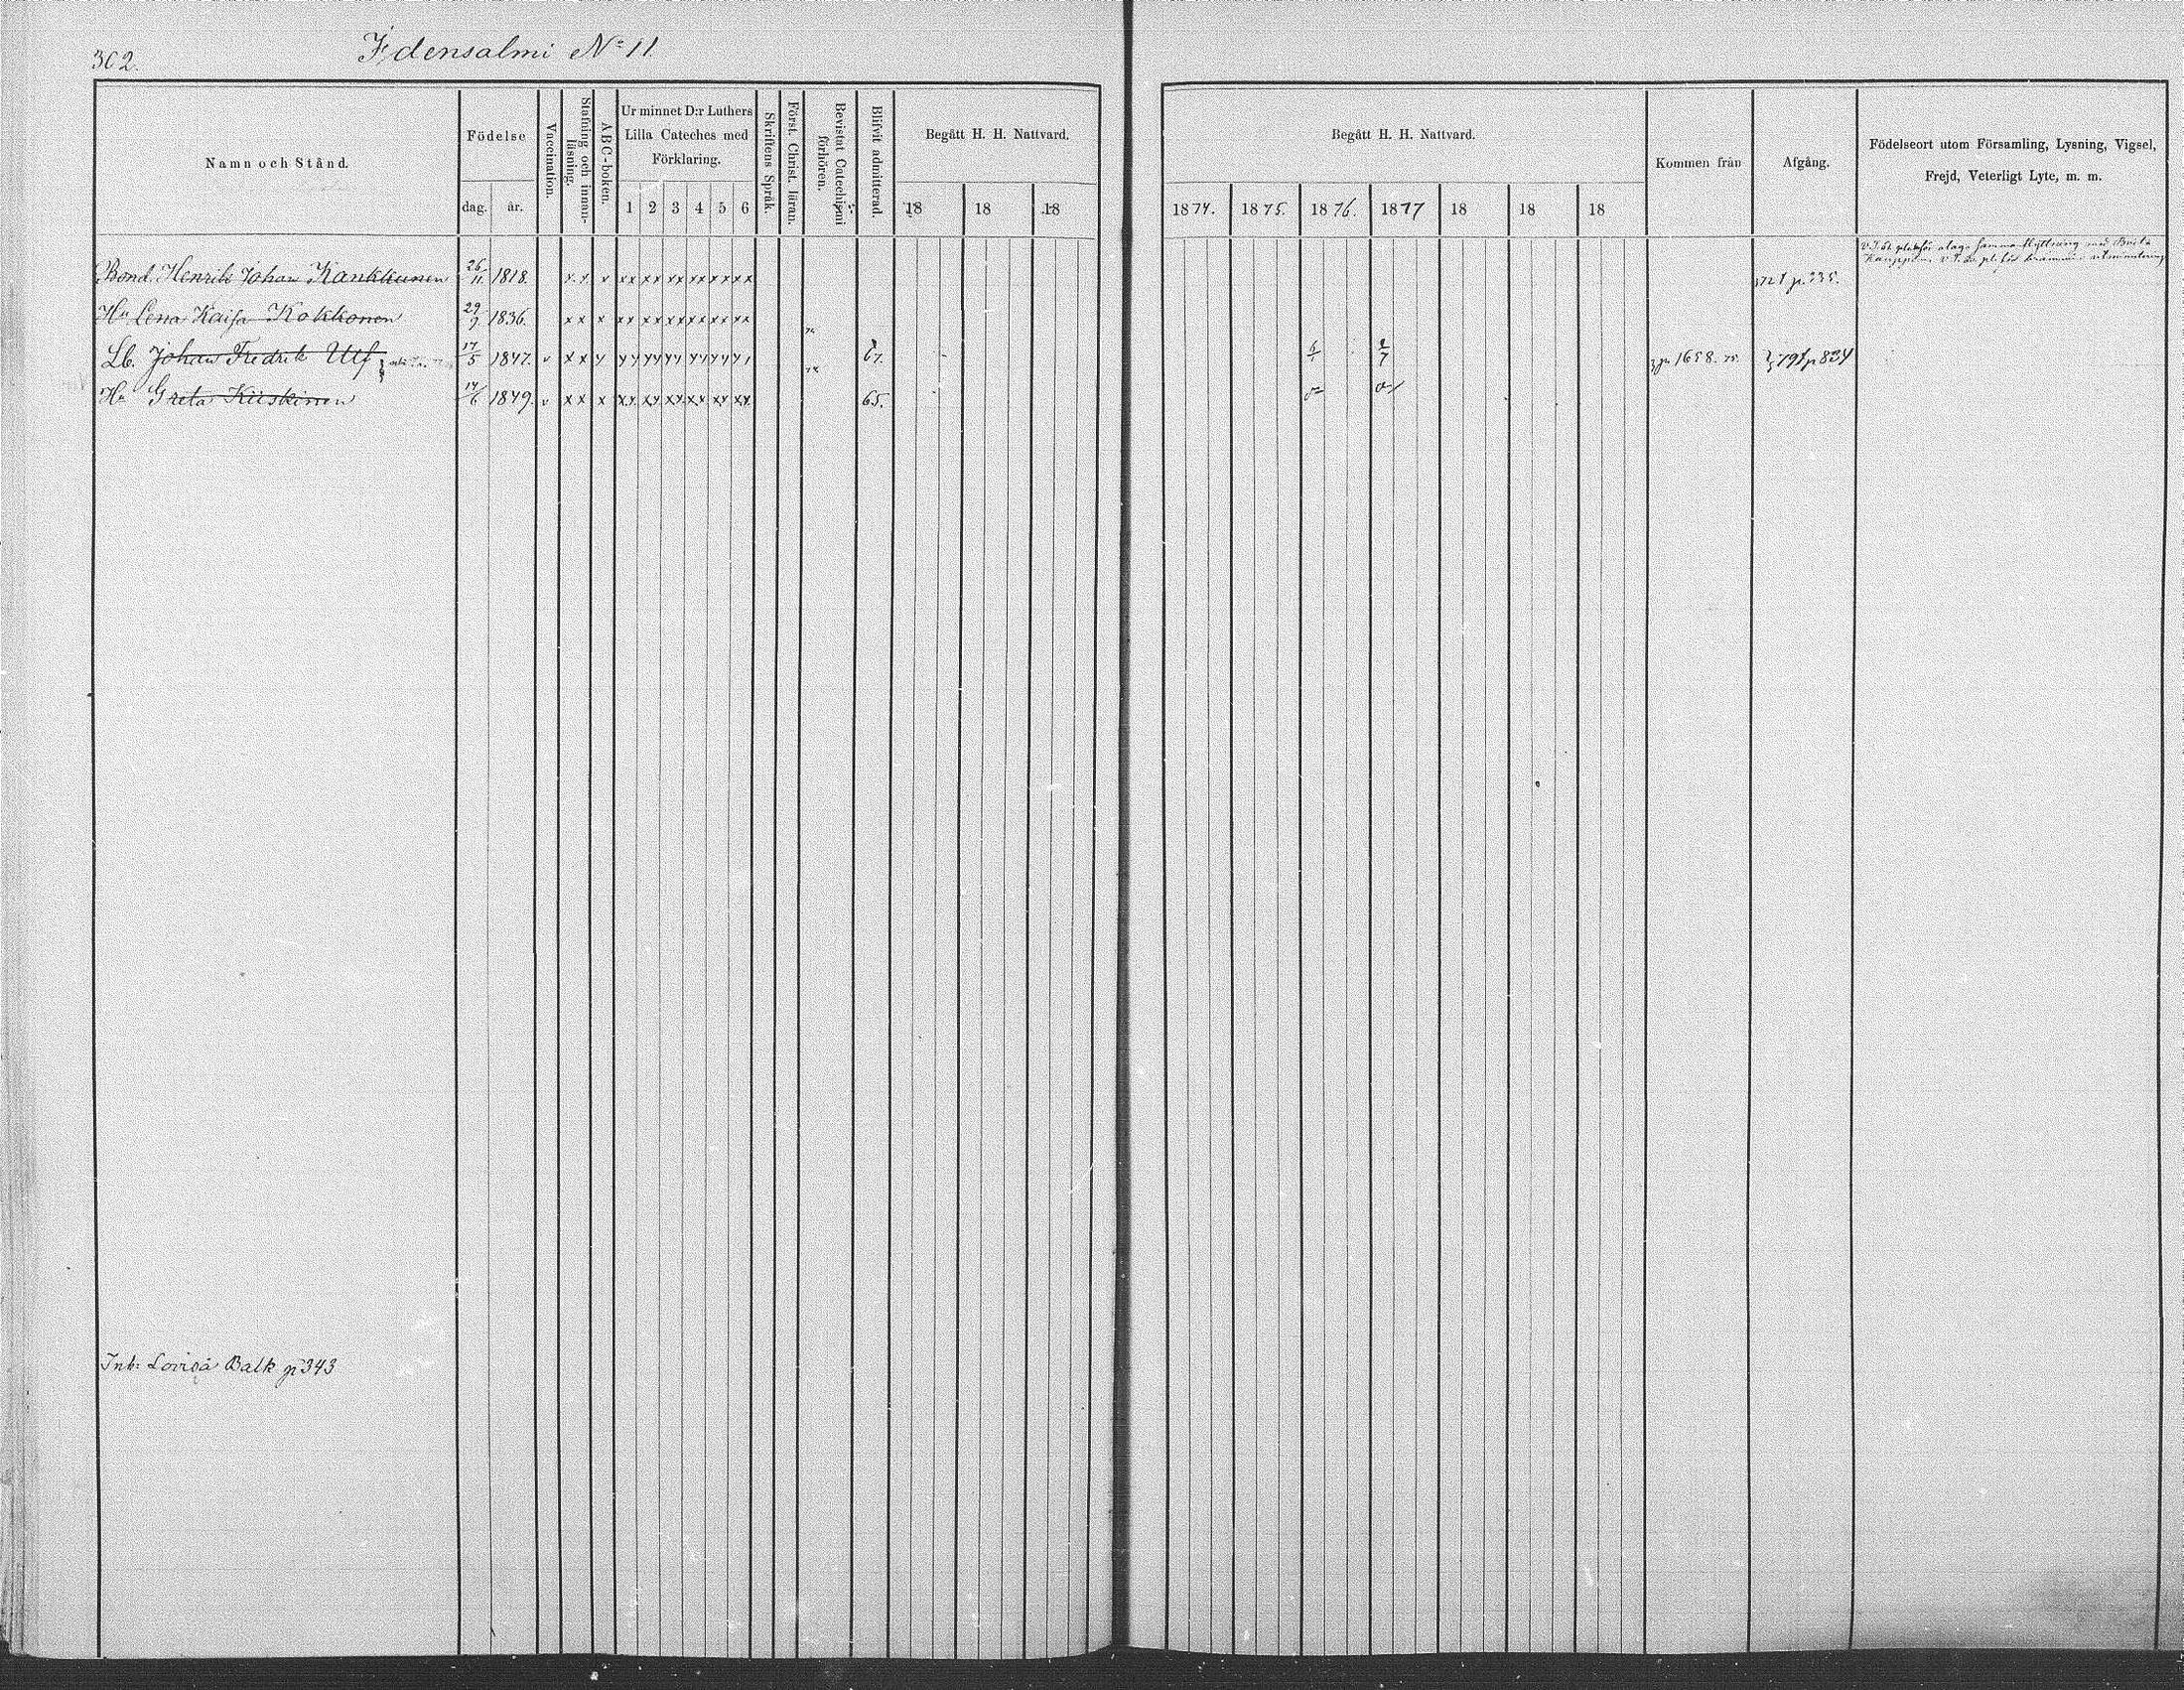 302.
Idensalmi No 11.
Namn och Stånd.
Födelse
dag. år.
Vaccination.
Stafning och innan-läsning.
ABC-boken.
Ur minnet D:r Luthers
Lilla Cateches med
Förklaring.
1 2 3 4 5 6
Skriftens Språk.
Först. Christ. läran.
Bevistat Catechismi förhören.
Blifvit admitterad.
Begått H. H. Nattvard.
18 18 18
Begått H. H. Nattvard.
1874. 1875. 1876. 1877 18 18 18
Kommen från
Afgång.
Födelseort utom Församling, Lysning, Vigsel,
Frejd, Veterligt Lyte, m. m.
Bond. Henrik Johan Kankkunen 26/11 1818. x x x xx xx xx xx xx xx p. 235.
Hu Lena Kaisa Kokkonen 29/9 1836. x x x xx xx xx xx xx xx
Lb. Johan Fredrik Ulf 17/5 1847. v x x y yy yy yy yy yy 67. 2/7 p. 1658. 75. 79 p 824
Hu Greta Kiiskinen 14/6 1849. v x x x xy xy xy xx xy xx 65.
Inh: Lovisa Balk p 343